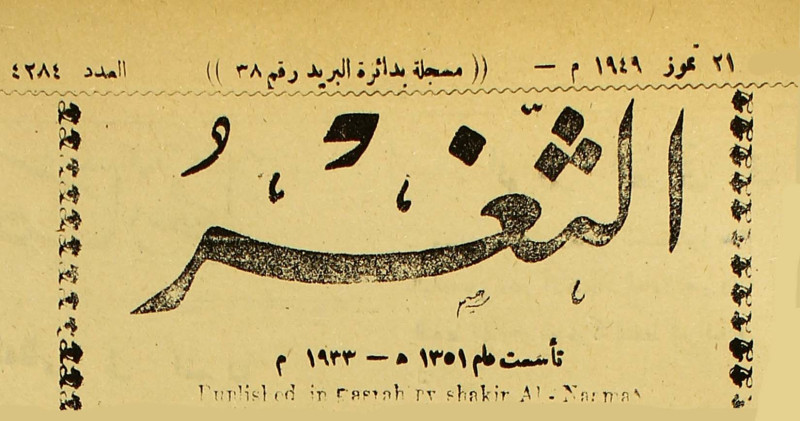 ٢١ تموز ١٩٤٩ م — (( مسجلة بدائرة البريد رقم ٣٨ )) العدد ٤٢٨٤
الثَّغْرُ
تأسست عام ١٣٥١ ه — ١٩٣٣ م
Published in Basrah by shakir Al-